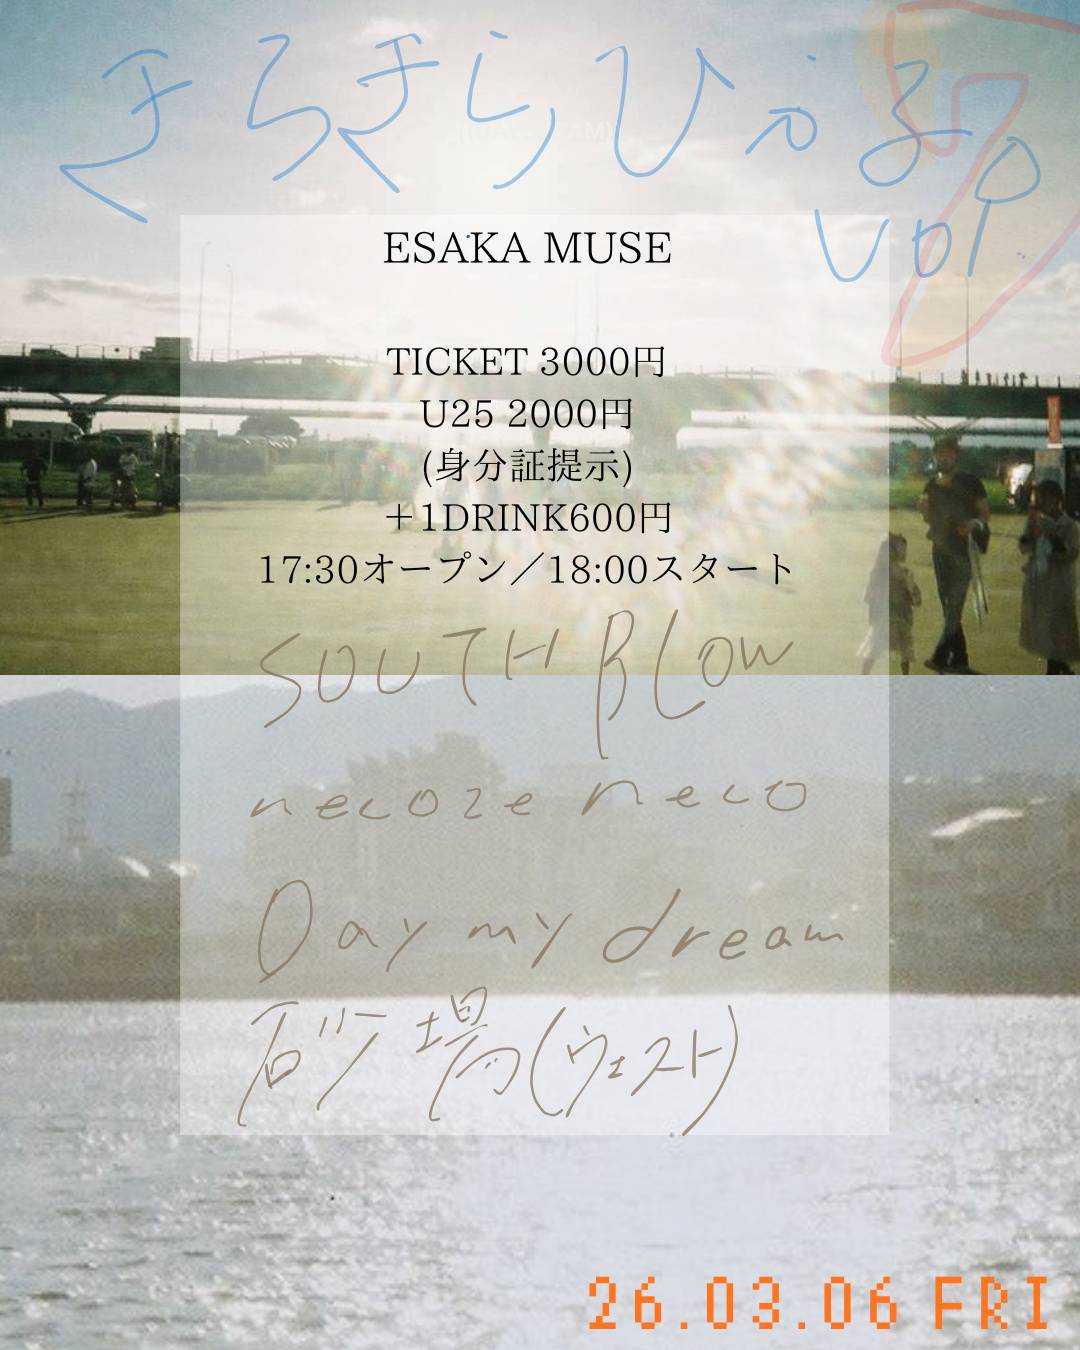 きらきらひかる
vol.7
ESAKA MUSE
TICKET 3000円
U25 2000円
(身分証提示)
＋1DRINK600円
17:30オープン／18:00スタート
SOUTH BLOW
necoze neco
Day my dream
砂場(ウェスト)
26.03.06 FRI